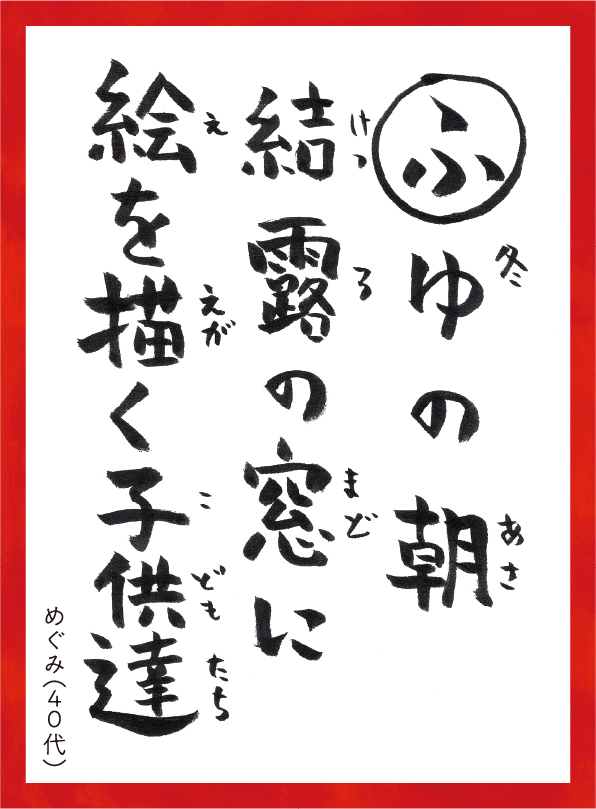 ふゆの朝
冬
あさ
結露の窓に
けつ
ろ
まど
絵を描く子供達
え
えが
こ
ども
たち
めぐみ(40代)